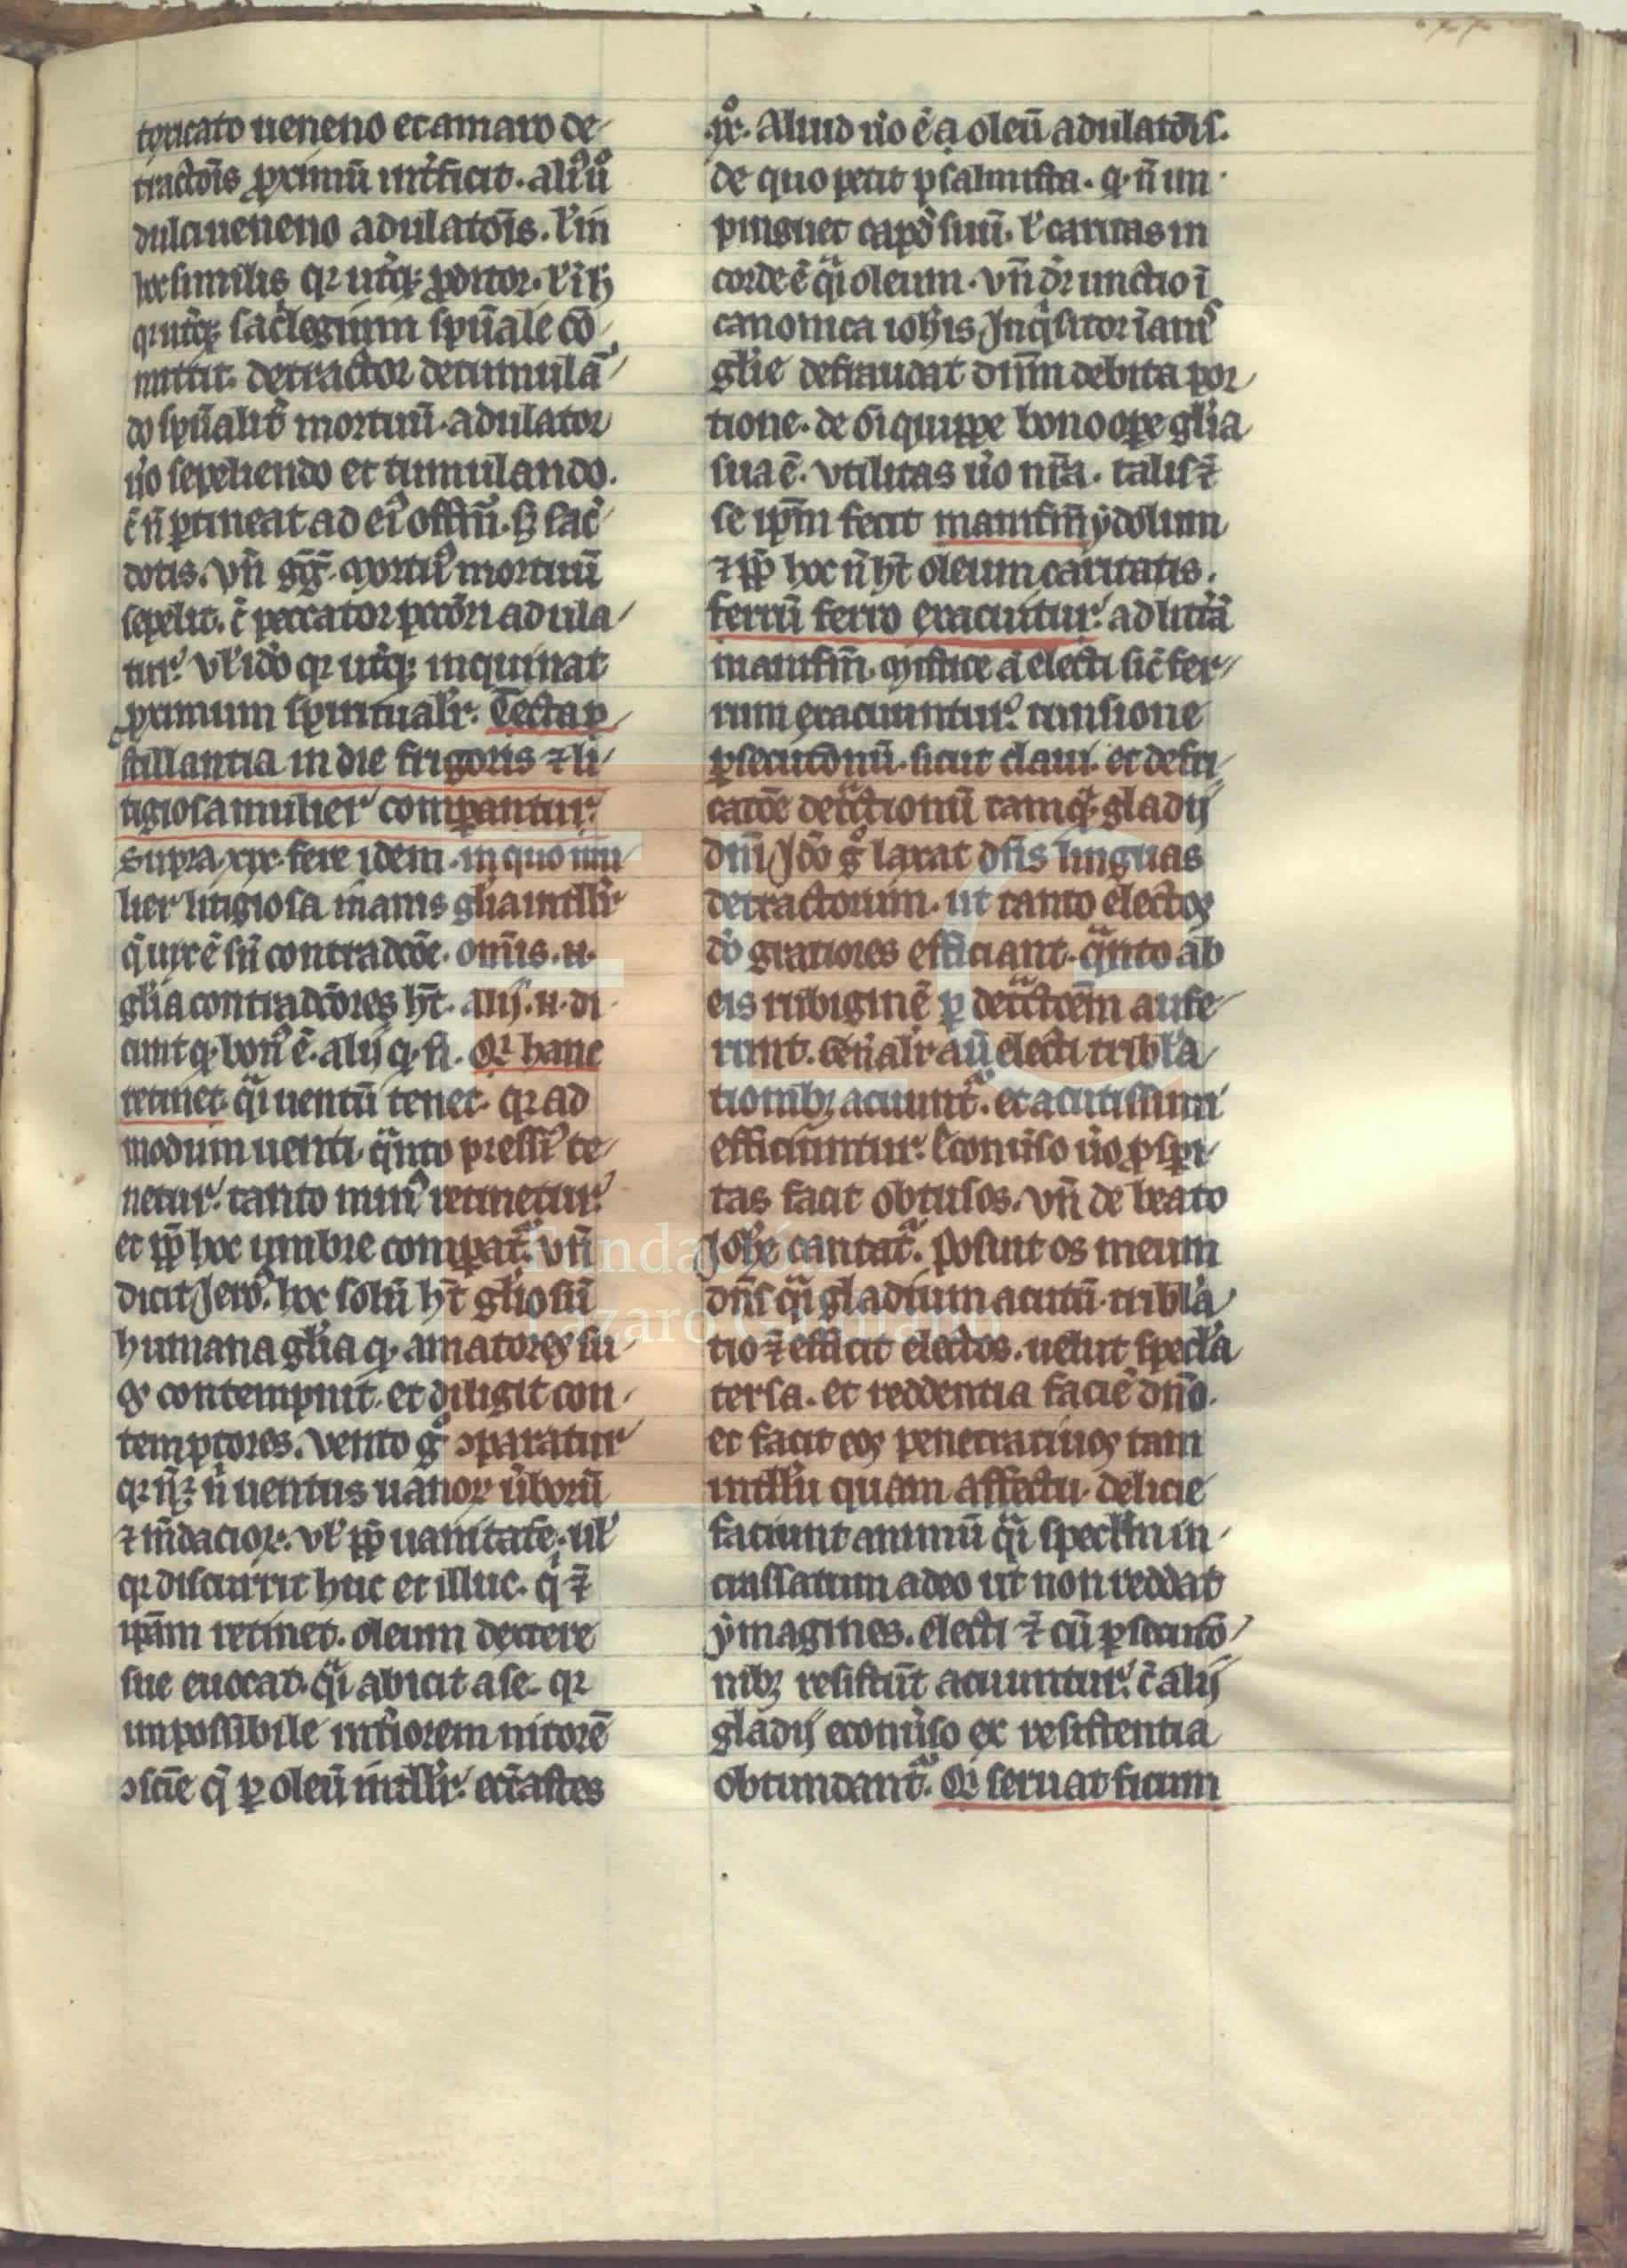 toxicato ueneno et amaro de-
tractōis ꝓximū int̓ficit. aliꝰ ū̊
dulci ueneno adulatōis. ł in
hoc similis qꝛ utq̓ꝫ ꝓditor. ł i h̓
qꝛ utq̓ꝫ sac̓legium spūale cō-
mittit. detractor detumulā-
do spūalit̓ mortuū. adulator
ůo sepeliendo et tumulando.
c̄ n̄ ꝑtineat ad eiꝰ offm̄. sꝫ sac̓-
dotis. vn̄ gg̓. mortuꝰ mortuū
sepelit. c̄ peccator pctōri adula-
tur. vł ido qꝛ utq̓ꝫ inquinat
ꝓximum spiritualr̓. Tecta ꝑ
stillantia in die frigoris ⁊ li-
tigiosa mulier comparantur.
supra. xix. fere idem. in quo mu-
lier litigiosa inanis glīa intllr̓
q̄ uix ē sn̄ contradcōe. om̄is. n.
glīa contradcōres ht̄. alij. n. di-
cunt q. bonꝰ ē. alij q. n̄. Qi hanc
retinet. q̈i uentū tenet. qꝛ ad
modum uenti q̈nto pressiꝰ te-
netur. tanto minꝰ retinetur.
et ꝓp̄ hoc umbre comparat᷑. vn̄
dicit Jeroꝰ. hoc solū ht̄ glīosū
humana glīa q. amatores su-
os contempnit. et diligit con-
temptores. vento g̊ ꝯparatur
qꝛ n̄ ⁊ n̄ uentus uanoꝝ ůborū
⁊ m̄dacioꝝ. vł ꝓp̄ uanitatē. uł
qꝛ discurrit huc et illuc. q̇ ⁊
ip̄am retinet. oleum dextere
sue euocat. q̈i abicit a se. qꝛ
impossibile int̓iorem nitorē
ꝯscīe q̄ ꝑ oleū intllr̓. ecc̄astes
.ix. Aliud ůo ē a oleū adulatōis.
de quo petit psalmista. q. n̄ im-
pinguet capd̓ suū. ł caritas in
corde ē q̈i oleum. vn̄ dr̓ unctio ī
canonica ioh̓is Jnq̇sitor īanis
glīe defraudat dn̄m debita por-
tione. de o̅i quippe bono oꝑe glīa
sua ē. vtilitas ůo nr̄a. talis ⁊
se ip̄m fecit manifm̄ ydolum
⁊ ꝓp̄ hoc n̄ ht̄ oleum caritatis.
ferrū ferro exacuitur. ad litt̓ā
manifm̄. mistice ā electi sic̄ fer-
rum exacuuntur. tunsione
ꝑsecutōnū. sicut claui. et defri-
catōe det̓ctionū tamq̈ gladij
dn̄i Jdō g̊ laxat dn̄s linguas
detractorum. ut tanto electos
dō gratiores efficiant. q̈nto ab
eis rubiginē ꝑ det̓ctōem aufe-
runt. Gen̄alr̓ aū electi tribla-
tionibꝫ acuunt᷑. et acutissimi
efficiuntur. Econůso ůo ꝓspi-
tas facit obtusos. vn̄ de beato
Johē cantat᷑. Posuit os meum
dn̄s q̈i gladium acutū. tribla-
tio ⁊ efficit electos. uelut specła
tersa. et reddentia faciē dn̄o.
et facit eos penetratiuos tam
intll̓u quam affectu. delicie
faciunt animū q̈i speclm̄ in-
crassatum adeo ut non reddat
ymagines. electi ⁊ cū ꝑsecutō-
nibꝫ resistūt acuuntur. c̄ alij
gladij econůso ex resistentia
obtundant᷑. Qi seruat ficum
Fundación
Lázaro Galdiano